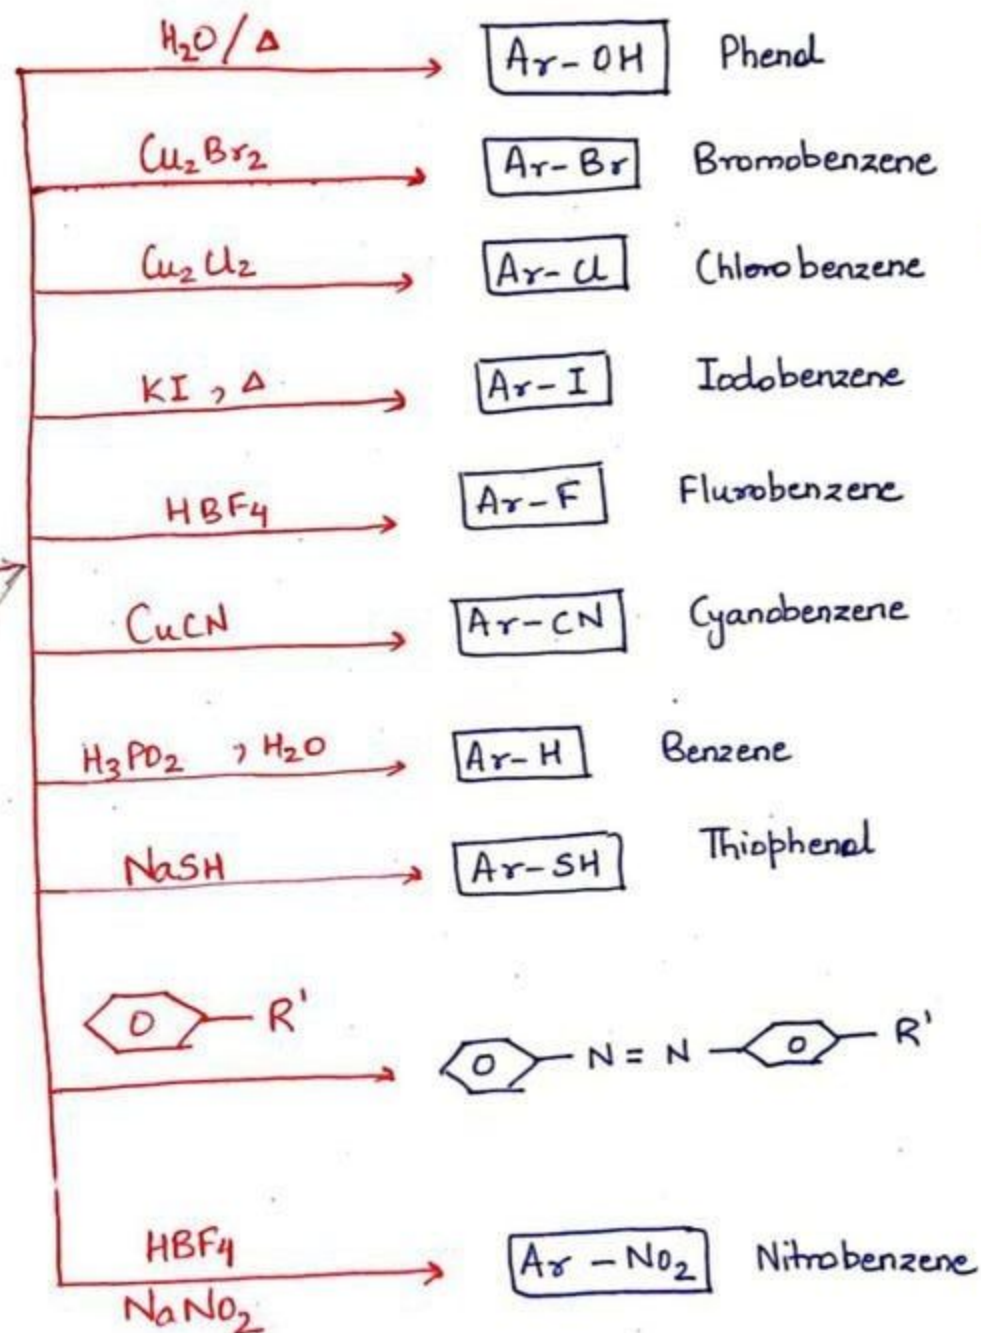 H₂O / Δ Ar-OH Phenol
Cu₂Br₂ Ar-Br Bromobenzene
Cu₂Cl₂ Ar-Cl Chlorobenzene
KI , Δ Ar-I Iodobenzene
HBF₄ Ar-F Flurobenzene
CuCN Ar-CN Cyanobenzene
H₃PO₂ , H₂O Ar-H Benzene
NaSH Ar-SH Thiophenol
R'
N = N R'
HBF₄ Ar - NO₂ Nitrobenzene
NaNO₂